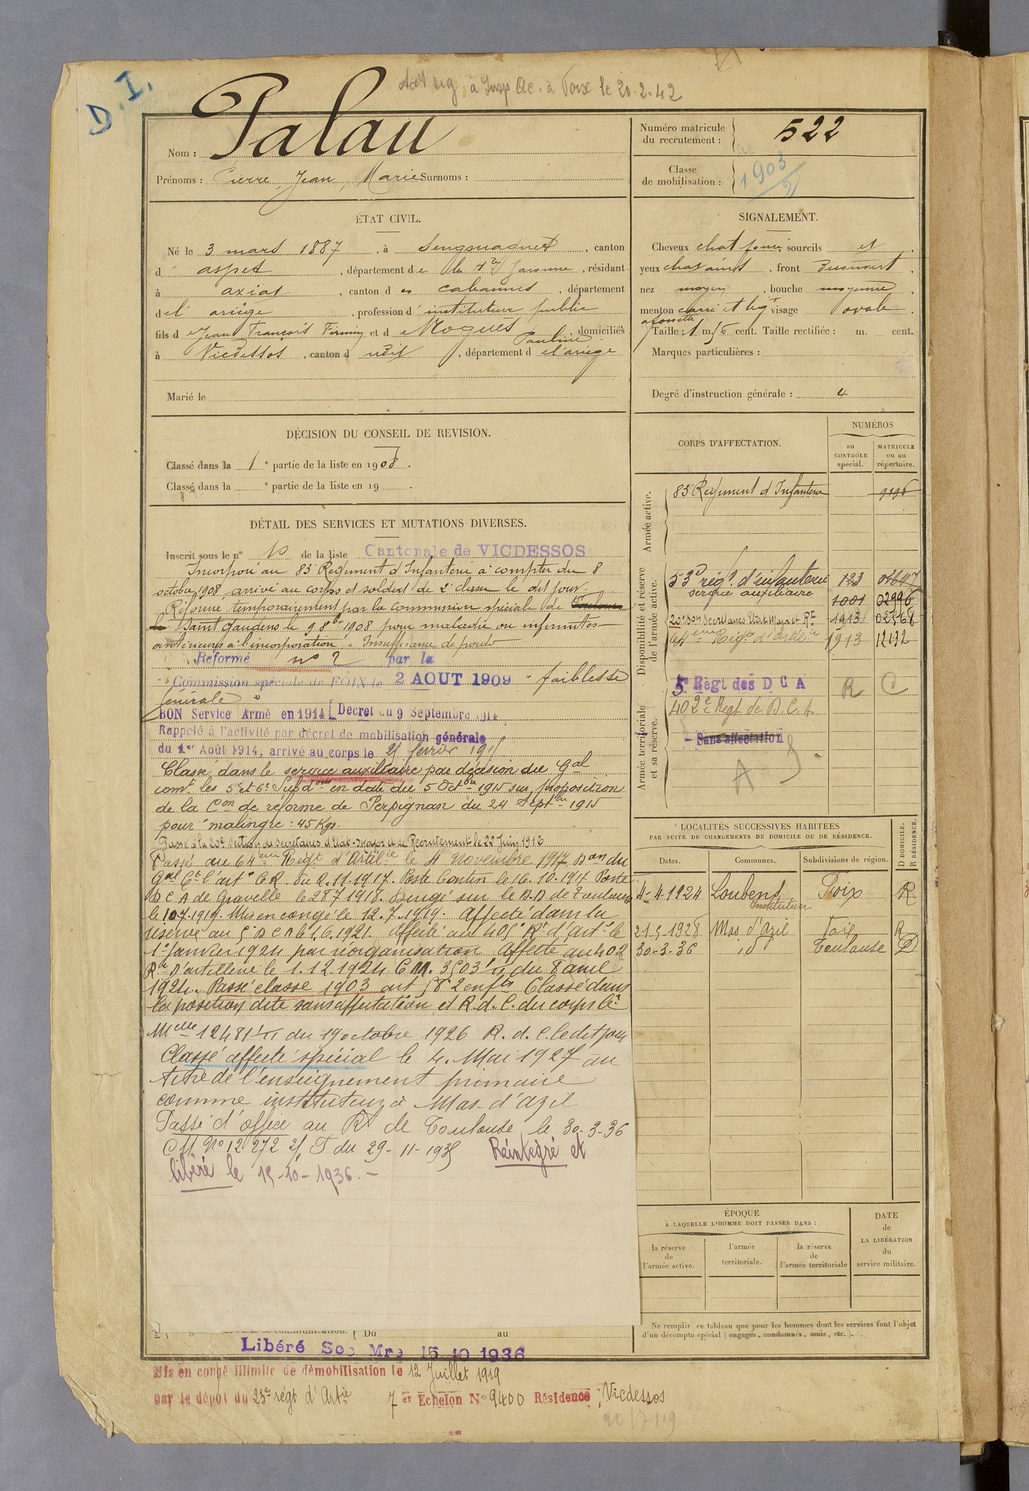 D.I.
à Insp Ac. à Foix le 20.2.42
Nom : Palau
Prénoms : Pierre Jean Marie Surnoms :
Numéro matricule du recrutement : 522
Classe de mobilisation : 1903/2
ÉTAT CIVIL.
Né le 3 mars 1887, à canton
d'aspet, département de la Hte Garonne, résidant
à axiat, canton de cabannes, département
de l'ariège, profession d'instituteur public
fils de Jean François Firmin et de Moques Pauline domiciliés
à Vicdessos, canton d udit, département de l'ariège
Marié le
SIGNALEMENT.
Cheveux chat foncé, sourcils et
yeux chatains, front
nez moyen, bouche moyenne
menton carré et visage ovale
à fossette
Taille : 1 m. cent. Taille rectifiée : m. cent.
Marques particulières :
Degré d'instruction générale : 4
DÉCISION DU CONSEIL DE REVISION.
Classé dans la 1e partie de la liste en 1908.
Classé dans la e partie de la liste en 19 .
DÉTAIL DES SERVICES ET MUTATIONS DIVERSES.
Inscrit sous le n° 10 de la liste Cantonale de VICDESSOS
Incorporé au 83 Régiment d'Infanterie à compter du 8
octobre 1908, arrivé au corps et soldat de 2e classe le dit jour.
Réformé temporairement par la commission spéciale de Toulouse
le Saint Gaudens le 9 8bre 1908 pour maladie ou infirmités
antérieures à l'incorporation. Insuffisance de poids
Réformé n° 2 par la
Commission spéciale de FOIX le 2 AOUT 1909 - faiblesse
générale
BON Service Armé en 1914 [Décret du 9 Septembre 1914
Rappelé à l'activité par décret de mobilisation générale
du 1er Août 1914, arrivé au corps le février 1915
Classé dans le service auxiliaire par décision du Gal
comt les 5 et 6e Subdons en date du 5 Octbre 1915 sur proposition
de la Con de réforme de Perpignan du 24 Septbre 1915
pour "malingre : 45 Kgs.
Passé à la 20e Section de Secrétaires d'Etat-Major et de Recrutement le 22 Juin 1916
Passé au 64eme Régt d'Artillie le 4 novembre 1917 Don du
Gal Ct l'arton G.R. du 2.11.1917. Poste Contin le 16.10.1917 Poste
D C A de Gravelle le 28 7 1918. Dirigé sur le D.D de Toulouse
le 10.7.1919. Mis en congé le 12.7.1919. Affecté dans la
réserve au 5 D C A le 1.6.1921. Affecté au 405 Rt d'artie le
1er Janvier 1924 par réorganisation. Affecté au 402
Rt d'artillerie le 1.12.1924 C.M. 3503 du 8 avril
1924. Passé classe 1903 art 58 2 enfts Classé dans
la position dite sans affectation et R.d.C. du corps le
Melle 12481 du 19 octobre 1926 R.d.C. le dit jour
Classé affecté spécial le 4 Mai 1927 au
titre de l'enseignement primaire
comme instituteur à Mas-d'azil
Passé d'office au Rt de Toulouse le 30-3-36
C.M. N° 12272 du 29-11-1935 Réintégré et
libéré le 15-10-1936. -
Du au
Libéré Sce Mre 15 10 1936
Mis en congé illimité de démobilisation le 12 Juillet 1919
par le dépôt du 23e régt d'Artie 7 er Echelon N° 9400 Résidence : Vicdessos
20/7/19
CORPS D'AFFECTATION.
NUMÉROS
au CONTRÔLE spécial.
MATRICULE ou au répertoire.
Armée active.
83 Régiment d'Infanterie
Disponibilité et réserve de l'armée active.
53e régt d'infanterie 123
service auxiliaire 1001 02996
20e Son Secrétaires Etat-Major et Rt 1913 02568
64eme Régt d'artillie 1913 12192
Armée territoriale et sa réserve.
5e Règt des D C A R C
402e Régt de D.C.A
- Sans affectation
A S.
LOCALITÉS SUCCESSIVES HABITÉES
PAR SUITE DE CHANGEMENTS DE DOMICILE OU DE RÉSIDENCE.
Dates. Communes. Subdivisions de région. D DOMICILE. R RÉSIDENCE.
4-4-1924 Loubens Foix R
Instituteur
21-5-1928 Mas d'Azil Foix R
30-3-36 id Toulouse D
ÉPOQUE
À LAQUELLE L'HOMME DOIT PASSER DANS :
la réserve de l'armée active.
l'armée territoriale.
la réserve de l'armée territoriale
DATE de LA LIBÉRATION du service militaire.
Ne remplir ce tableau que pour les hommes dont les services font l'objet
d'un décompte spécial (engagés, condamnés, omis, etc.).